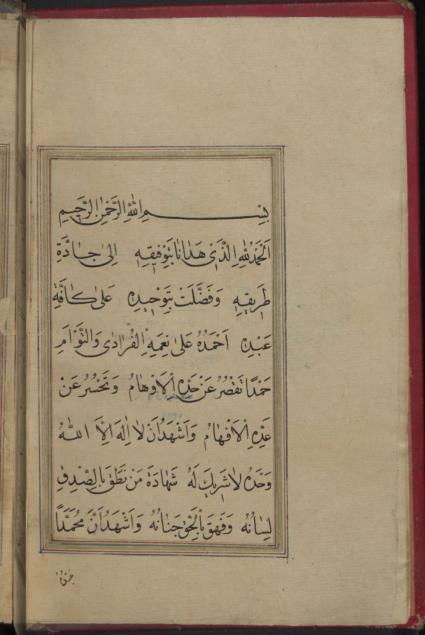 بِسْمِ اللهِ الرَّحْمٰنِ الرَّحِيمِ
اَلْحَمْدُ لِلّٰهِ الَّذِى هَدَانَا بِتَوْفِيقِهِ اِلىٰ جَادَّةِ
طَرِيقِهِ وَفَضَّلَنَا بِتَوْحِيدِهِ عَلىٰ كَافَّةِ
عَبِيدِهِ اَحْمَدُهُ عَلىٰ نِعَمِهِ الْفُرَادٰى وَالتَّوْاَمِ
حَمْدًا تَقْصُرُ عَنْ حَدِّهِ الْاَوْهَامُ وَتَحْسُرُ عَنْ
عَدِّهِ الْاَفْهَامُ وَاَشْهَدُ اَنْ لَا اِلٰهَ اِلَّا اللهُ
وَحْدَهُ لَا شَرِيكَ لَهُ شَهَادَةَ مَنْ نَطَقَ بِالصِّدْقِ
لِسَانُهُ وَفَهِقَ بِالْحَقِّ جَنَانُهُ وَاَشْهَدُ اَنَّ مُحَمَّدًا